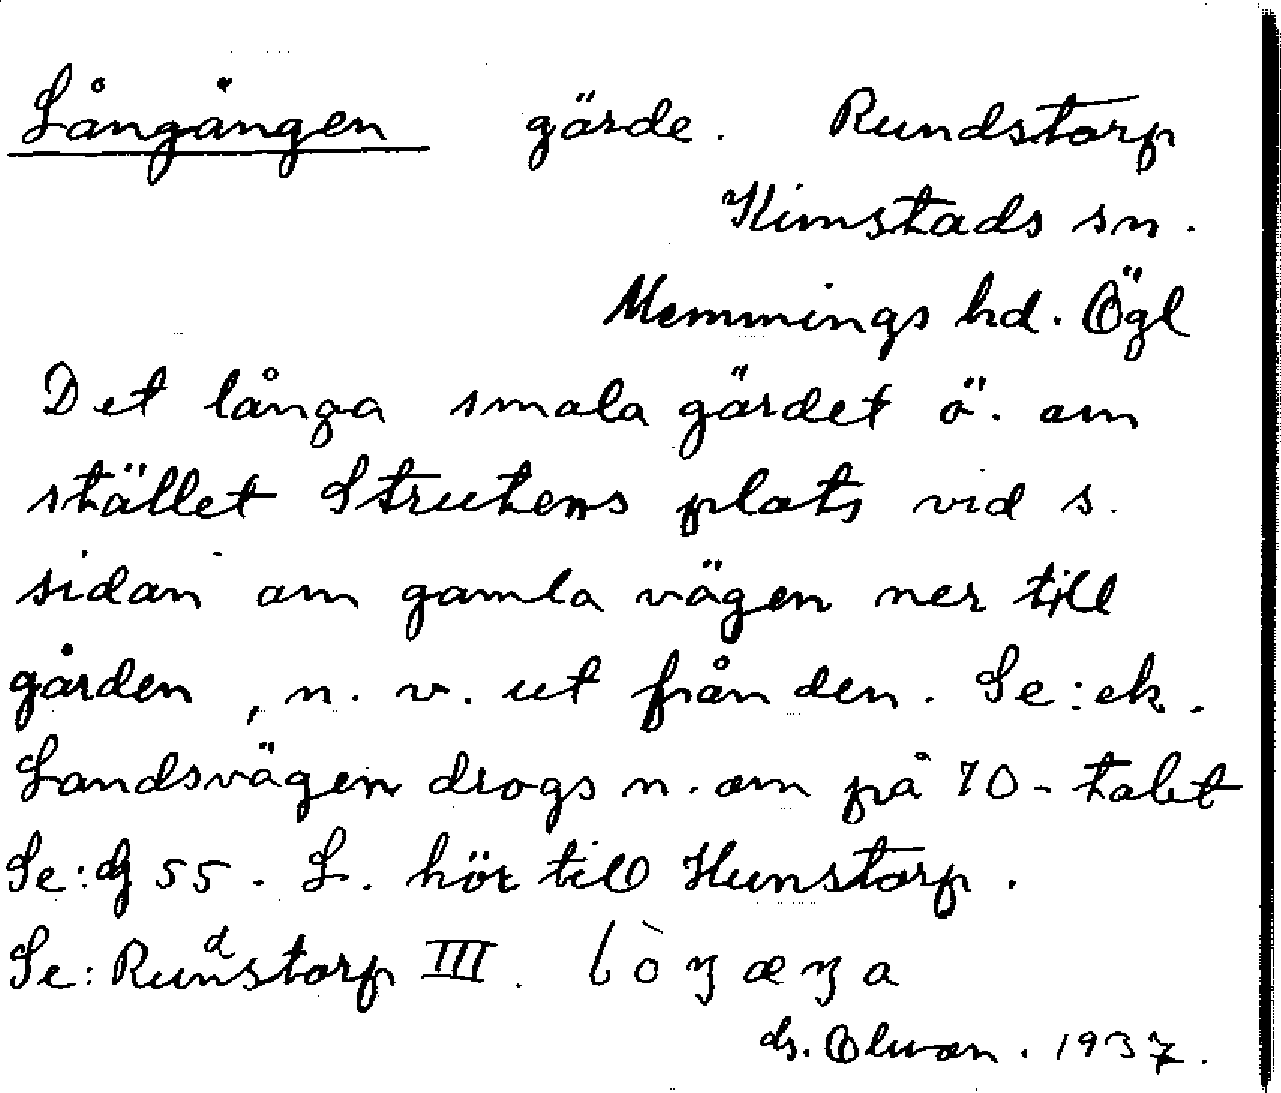 Långången gärde. Rundstorp
Kimstads sn.
Memmings hd. Ögl
Det långa smala gärdet ö. om
stället Strutens plats vid s.
sidan om gamla vägen ner till
gården, n. v. ut från den. Se: ek.
Landsvägen drogs n. om på 70-talet
Se: dj 55. L. hör till Hunstorp.
Se: Rundstorp III.
1937.